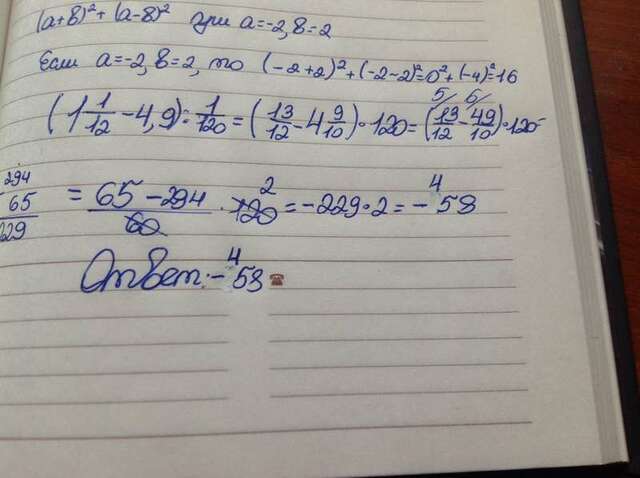 (a+в)² + (a-в)² при a=-2, в=2
Если a=-2, в=2, то (-2+2)²+(-2-2)²=0²+(-4)²=16
(1 1/12 - 4,9) : 1/120 = (13/12 - 4 9/10) · 120 = (13/12 5/ - 49/10 6/) · 120=
294
65
229
= 65-294/60 · 120 2 = -229·2 = -458
Ответ: -458 ☎